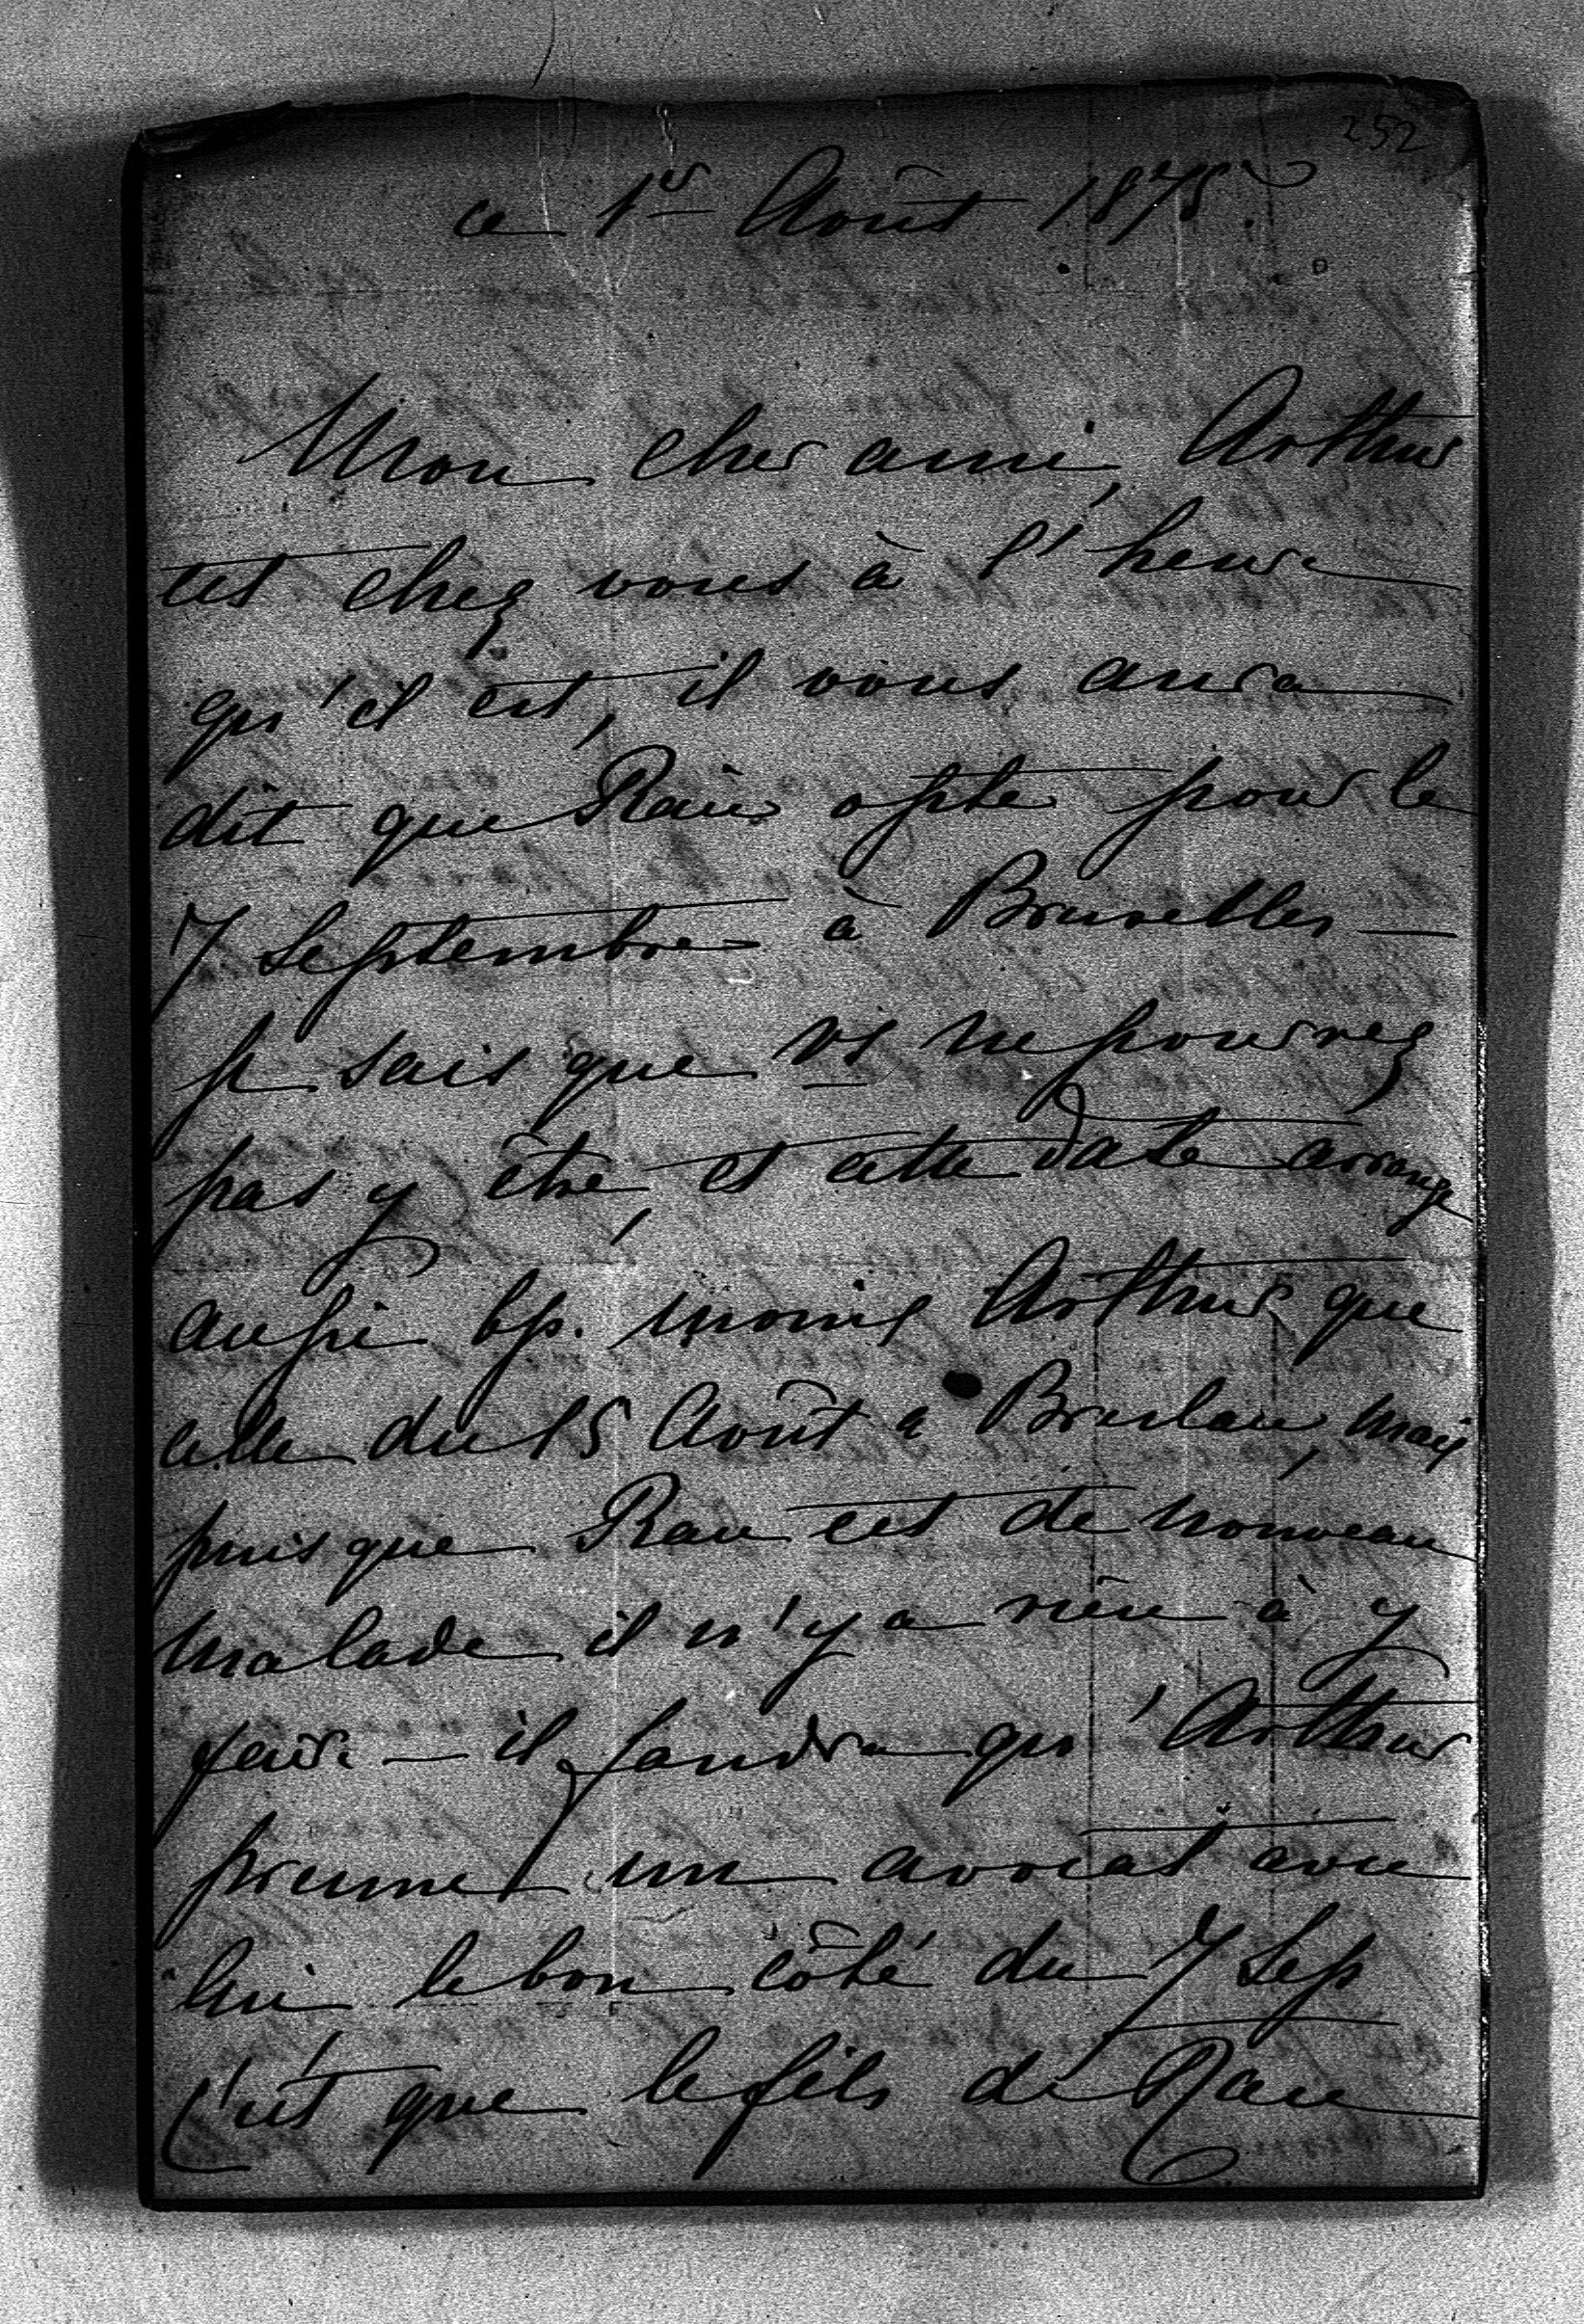 252
ce 1er Août 1875.
Mon cher ami, Arthur
est chez vous à l'heure
qu'il est, il vous aura
dit que Rau opte pour le
7 Septembre à Bruxelles —
je sais que vs ne pourrez
pas y être, et cette date arrange
aussi bp. moins Arthur que
celle du 15 Août à Breslau, mais
puisque Rau est de nouveau
malade il n'y a rien à y
faire — il faudra qu'Arthur
prenne un avocat avec
lui le bon côté du 7 Sep
c'est que le fils de Rau